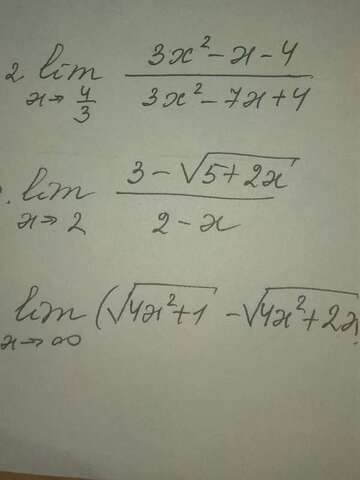 2. lim x→4/3 (3x²-x-4)/(3x²-7x+4)
lim x→2 (3-√(5+2x))/(2-x)
lim x→∞ (√(4x²+1) -√(4x²+2x